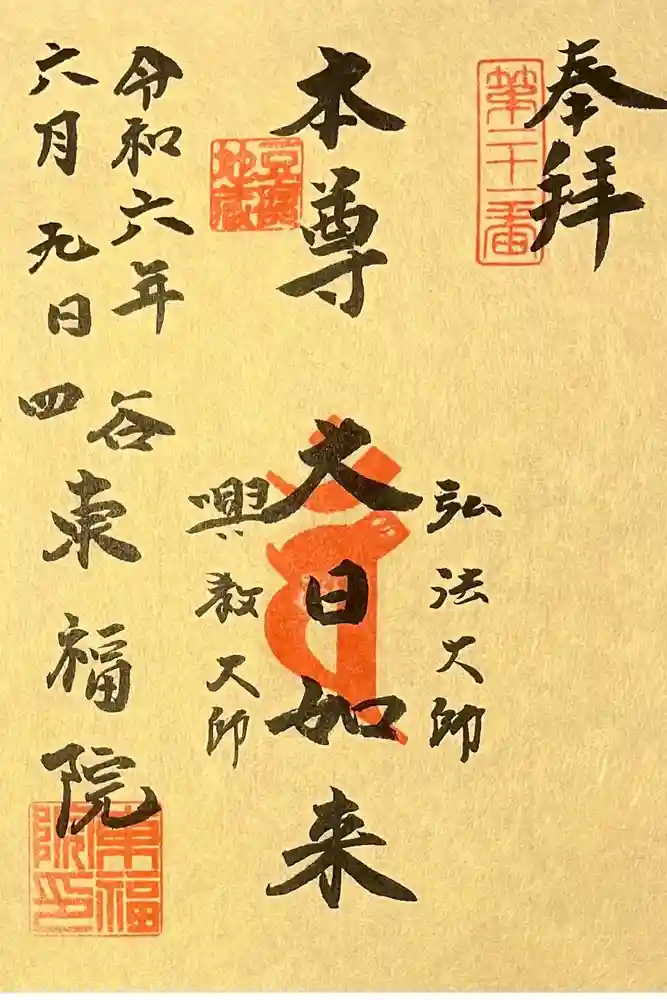 奉拝
第二十一番
本尊
大日如来
弘法大師
興教大師
豆腐
地蔵
令和六年
六月九日
四谷
東福院
東福
院印